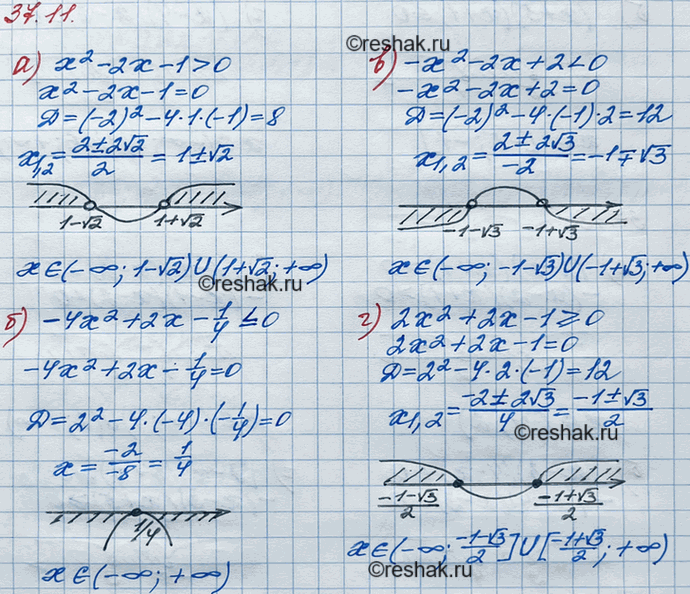 37.11.
а) x² - 2x - 1 > 0
x² - 2x - 1 = 0
D = (-2)² - 4·1·(-1) = 8
x₁,₂ = (2 ± 2√2)/2 = 1 ± √2
1-√2 1+√2
x ∈ (-∞; 1-√2) ∪ (1+√2; +∞)
б) -4x² + 2x - 1/4 ≤ 0
-4x² + 2x - 1/4 = 0
D = 2² - 4·(-4)·(-1/4) = 0
x = -2/-8 = 1/4
1/4
x ∈ (-∞; +∞)
©reshak.ru
в) -x² - 2x + 2 < 0
-x² - 2x + 2 = 0
D = (-2)² - 4·(-1)·2 = 12
x₁,₂ = (2 ± 2√3)/-2 = -1 ∓ √3
-1-√3 -1+√3
x ∈ (-∞; -1-√3) ∪ (-1+√3; +∞)
©reshak.ru
г) 2x² + 2x - 1 ≥ 0
2x² + 2x - 1 = 0
D = 2² - 4·2·(-1) = 12
x₁,₂ = (-2 ± 2√3)/4 = (-1 ± √3)/2
©reshak.ru
(-1-√3)/2 (-1+√3)/2
x ∈ (-∞; (-1-√3)/2] ∪ [(-1+√3)/2; +∞)
©reshak.ru